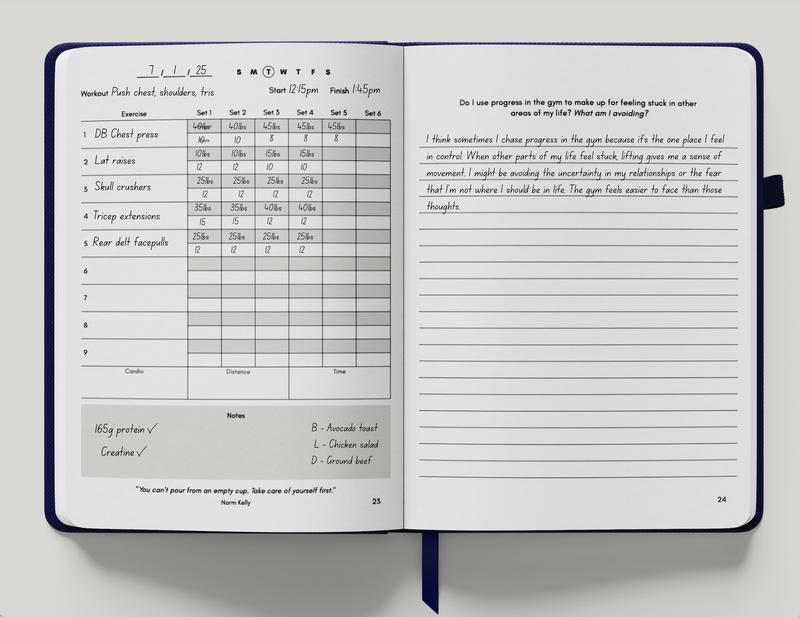 7 / 1 / 25 S M T W T F S
Workout Push chest, shoulders, tris Start 12:15pm Finish 1:45pm
Exercise Set 1 Set 2 Set 3 Set 4 Set 5 Set 6
40lbs 40lbs 45lbs 45lbs 45lbs
1 DB Chest press
10 10 8 8 8
10lbs 10lbs 15lbs 15lbs
2 Lat raises
12 12 10 10
25lbs 25lbs 25lbs 25lbs
3 Skull crushers
12 12 12 12
35lbs 35lbs 40lbs 40lbs
4 Tricep extensions
15 15 12 12
25lbs 25lbs 25lbs 25lbs
5 Rear delt facepulls
12 12 12 12
6
7
8
9
Cardio Distance Time
Notes
165g protein ✓ B - Avocado toast
L - Chicken salad
Creatine ✓
D - Ground beef
"You can't pour from an empty cup. Take care of yourself first."
Norm Kelly
23
Do I use progress in the gym to make up for feeling stuck in other
areas of my life? What am I avoiding?
I think sometimes I chase progress in the gym because it's the one place I feel
in control. When other parts of my life feel stuck, lifting gives me a sense of
movement. I might be avoiding the uncertainty in my relationships or the fear
that I'm not where I should be in life. The gym feels easier to face than those
thoughts.
24